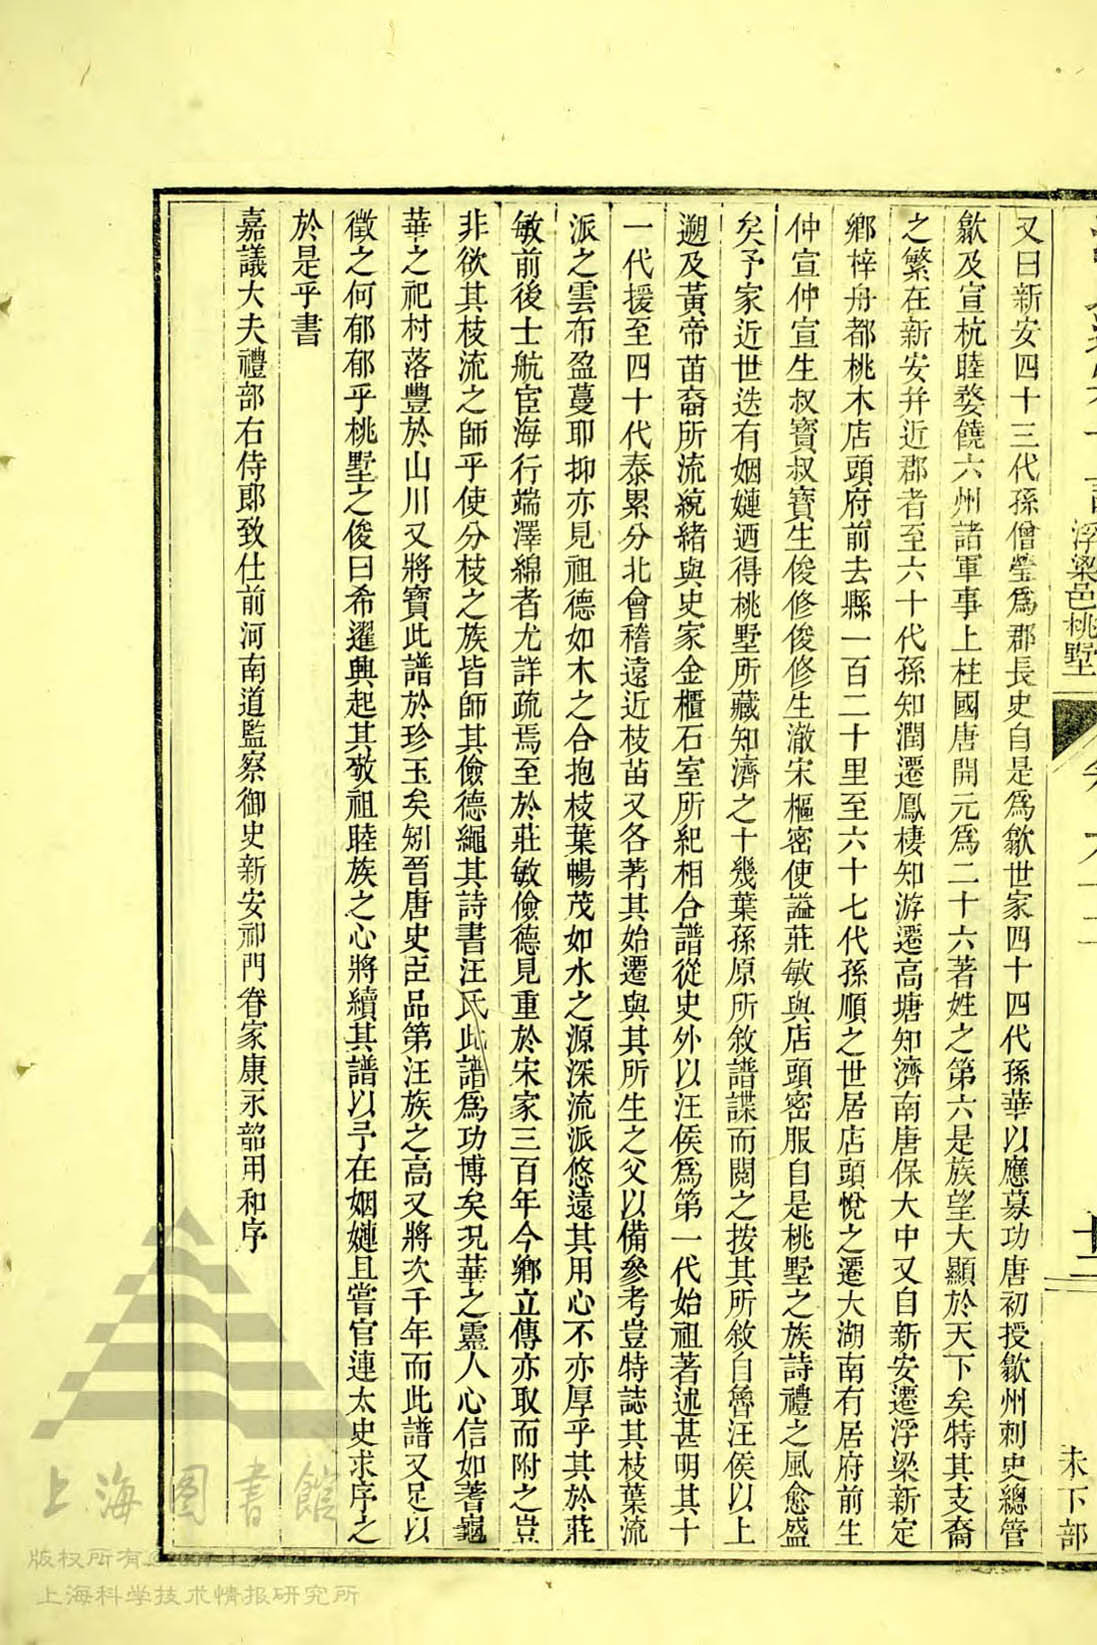 浮梁邑桃墅
十二
未下部
又曰新安四十三代孫僧瑩爲郡長史自是爲歙世家四十四代孫華以應募功唐初授歙州刺史總管
歙及宣杭睦婺饒六州諸軍事上柱國唐開元爲二十六著姓之第六是族望大顯於天下矣特其支裔
之繁在新安并近郡者至六十代孫知潤遷鳳棲知游遷高塘知濟南唐保大中又自新安遷浮梁新定
鄉梓舟都桃木店頭府前去縣一百二十里至六十七代孫順之世居店頭悅之遷大湖南有居府前生
仲宣仲宣生叔寶叔寶生俊修俊修生澈宋樞密使謚莊敏與店頭密服自是桃墅之族詩禮之風愈盛
矣予家近世迭有姻嫌迺得桃墅所藏知濟之十幾葉孫原所敘譜諜而閱之按其所敘自魯汪侯以上
遡及黃帝苗裔所流統緒與史家金櫃石室所紀相合譜從史外以汪侯爲第一代始祖著述甚明其十
一代援至四十代泰累分北會稽遠近枝苗又各著其始遷與其所生之父以備參考豈特誌其枝葉流
派之雲布盈蔓耶抑亦見祖德如木之合抱枝葉暢茂如水之源深流派悠遠其用心不亦厚乎其於莊
敏前後士航宦海行端澤綿者尤詳疏焉至於莊敏儉德見重於宋家三百年今鄉立傳亦取而附之豈
非欲其枝流之師乎使分枝之族皆師其儉德繩其詩書汪氏此譜爲功博矣況華之靈人心信如蓍龜
華之祀村落豐於山川又將寶此譜於珍玉矣矧晉唐史臣品第汪族之高又將次千年而此譜又足以
徵之何郁郁乎桃墅之俊曰希暹興起其敬祖睦族之心將續其譜以予在姻嫌且嘗官連太史求序之
於是乎書
嘉議大夫禮部右侍郎致仕前河南道監察御史新安祁門眷家康永韶用和序
上海圖書館
版权所有©
上海科学技术情报研究所